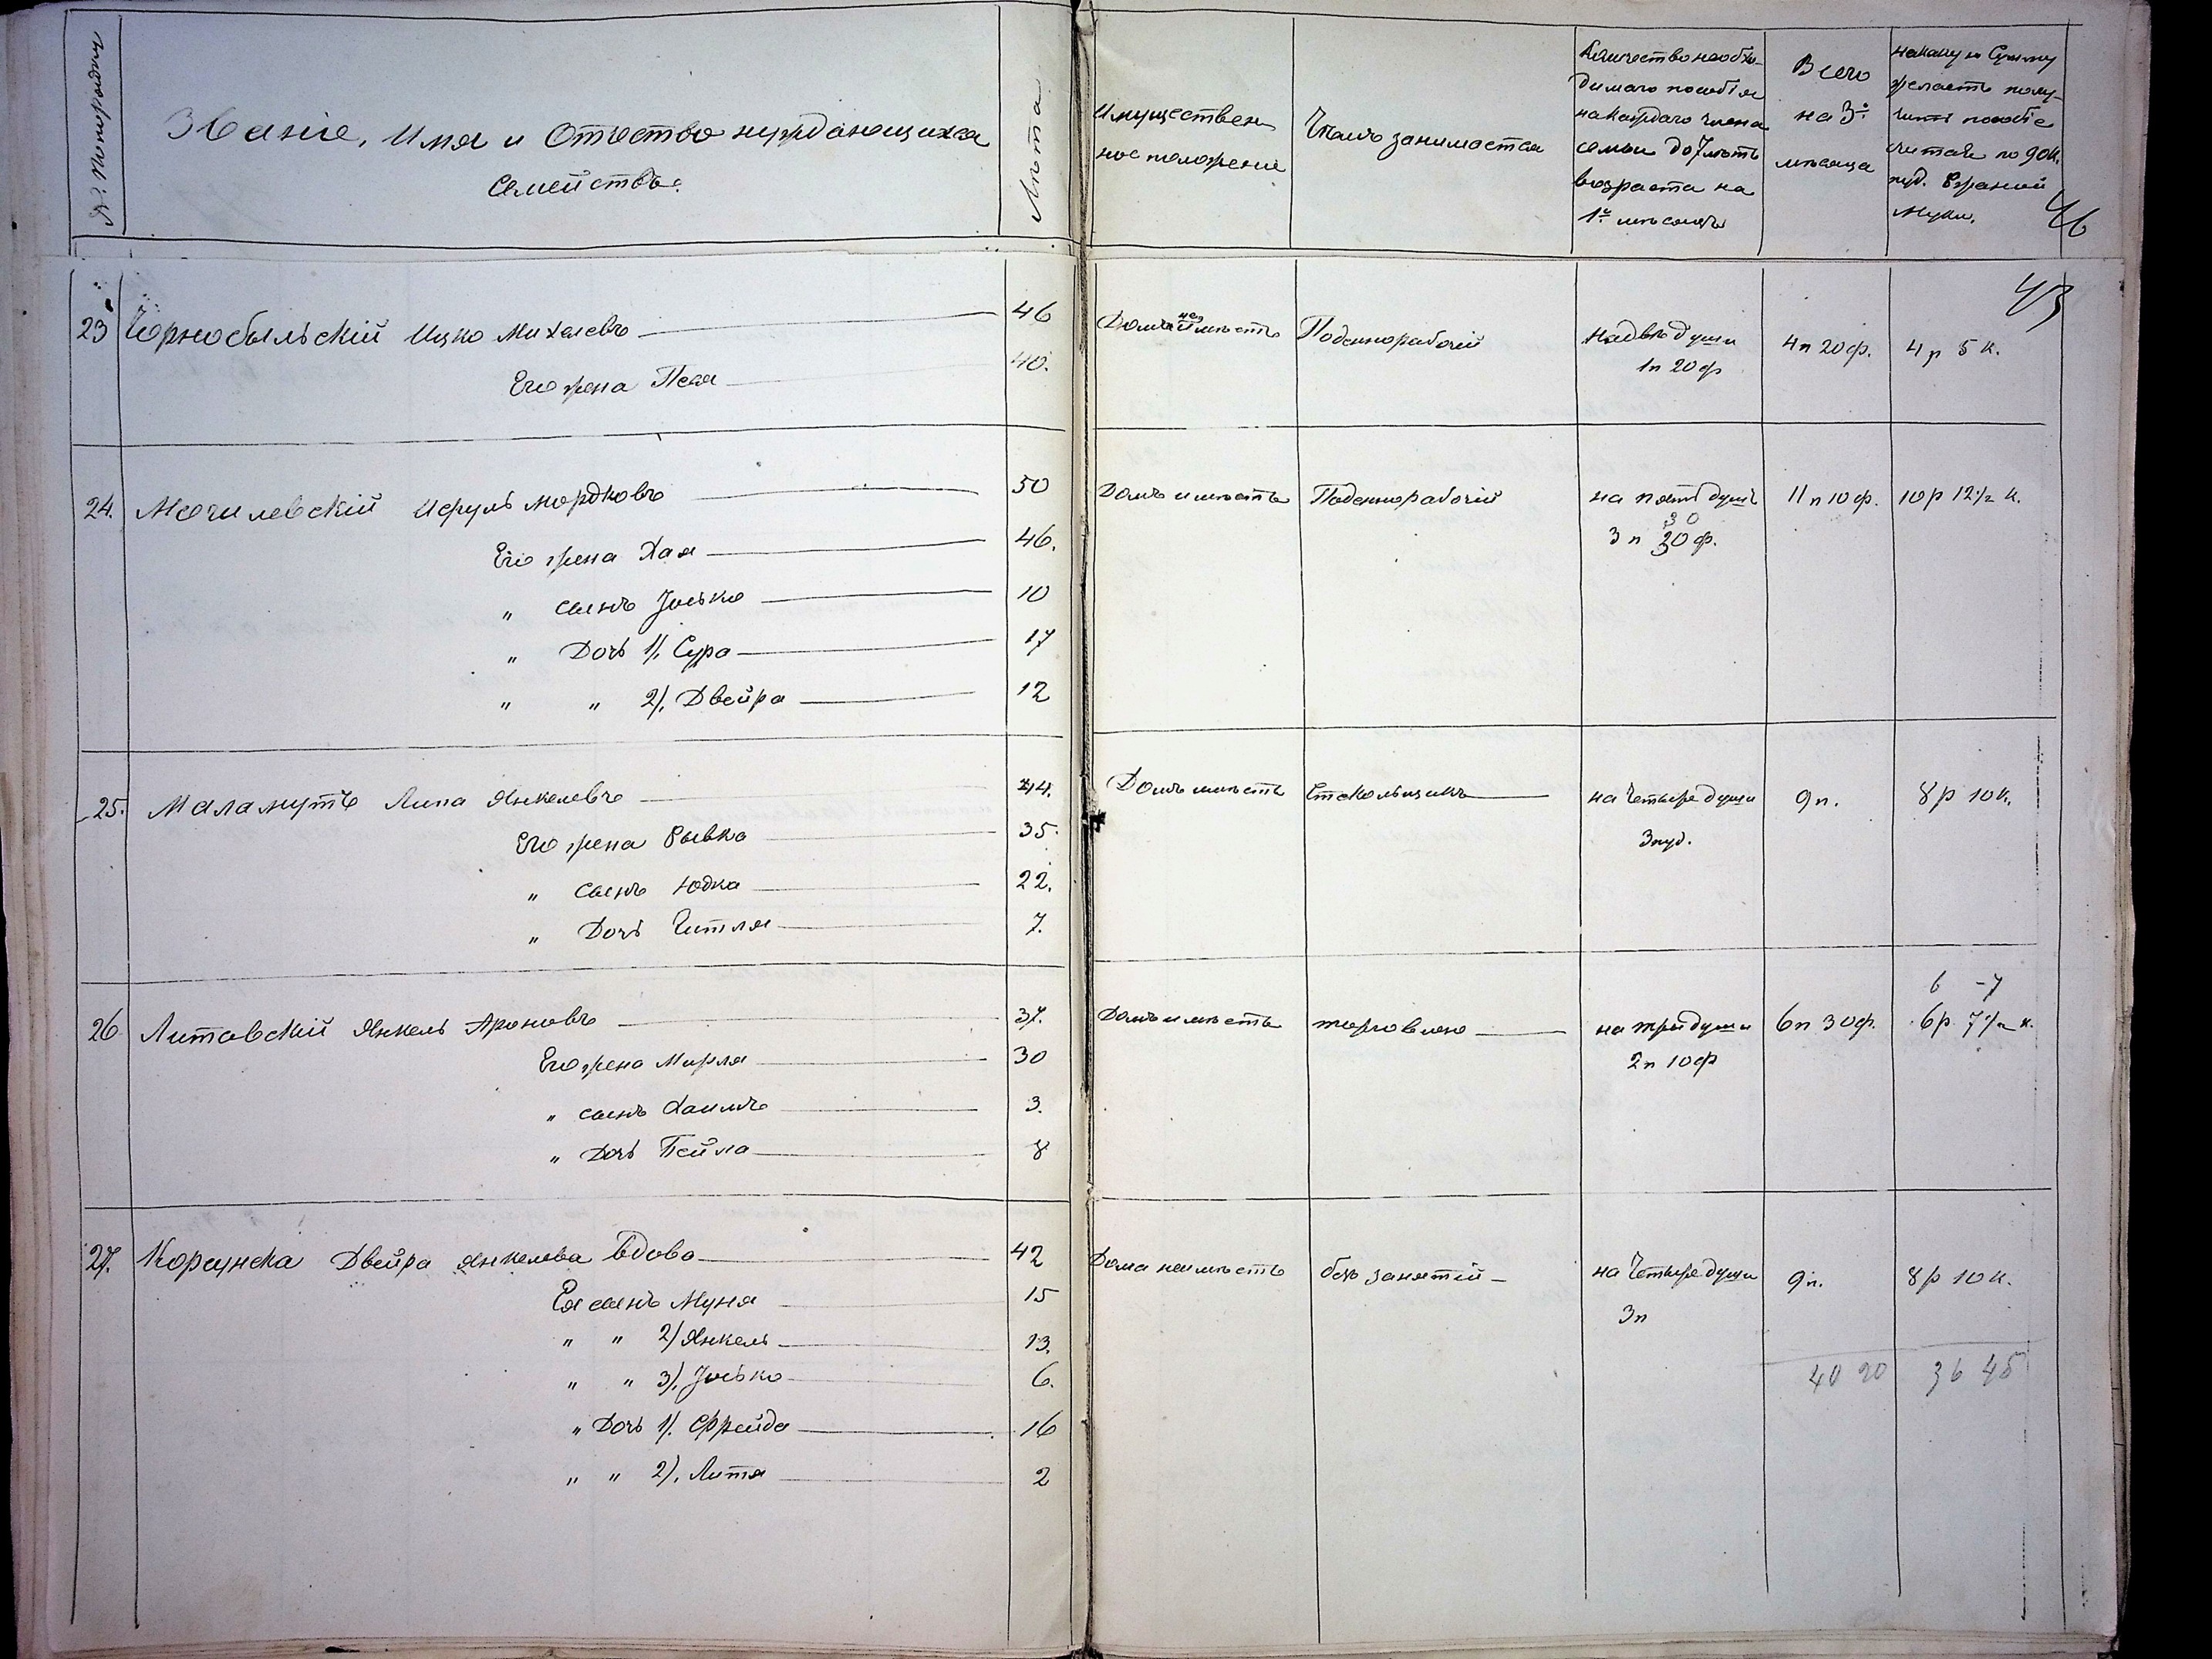 № По порядку
Званіе, Имя и Отчество нуждающихся
Семействъ.
Лѣта
Имуществен
ное положеніе
Чѣмъ занимается
Количество необхо-
димаго пособія
на каждаго члена
семьи до 7 лѣтъ
возраста на
1й мѣсяцъ
Всего
на 3и
мѣсяца
на какую Сумму
желаетъ полу-
чить пособіе
считая по 90 к.
пуд. Ржаной
Муки.
46
43
23 Чорнобыльскій Ицко Михелевъ 46 Дома не имѣетъ Поденнорабочій на двѣ души 4 п 20 ф. 4 р 5 к.
Его жена Песя 40. 1 п 20 ф
24. Могилевскій Исруль Мордковъ 50 Домъ имѣетъ Поденнорабочій на пять душъ 11 п 10 ф. 10 р 12 1/2 к.
30
Его жена Хая 46. 3 п 30 ф.
„ сынъ Іосько 10
„ Дочь 1/, Сура 17
„ „ 2/, Двейра 12
25. Маламутъ Липа Янкелевъ 44. Домъ имѣетъ Стекольщикъ на Четыре души 9 п. 8 р 10 к.
Его жена Рывка 35. 3 пуд.
„ сынъ Юдка 22.
„ Дочь Гитля 7.
6 - 7
26 Литовскій Янкель Ароновъ 37. Домъ имѣетъ торговлею на три души 6 п 30 ф. 6 р 7 1/2 к.
Его жена Мирля 30 2 п 10 ф
„ сынъ Хаимъ 3.
„ Дочь Бейла 8
27. Корсунска Двейра Янкелева Вдова 42 Дома неимѣетъ безъ занятій на Четыре души 9 п. 8 р 10 к.
Ея сынъ Муня 15 3 п
„ „ 2/ Янкель 13.
„ „ 3/, Іосько 6.
40 20 36 45
„ Дочь 1/. Фрейда 16
„ „ 2/, Литя 2